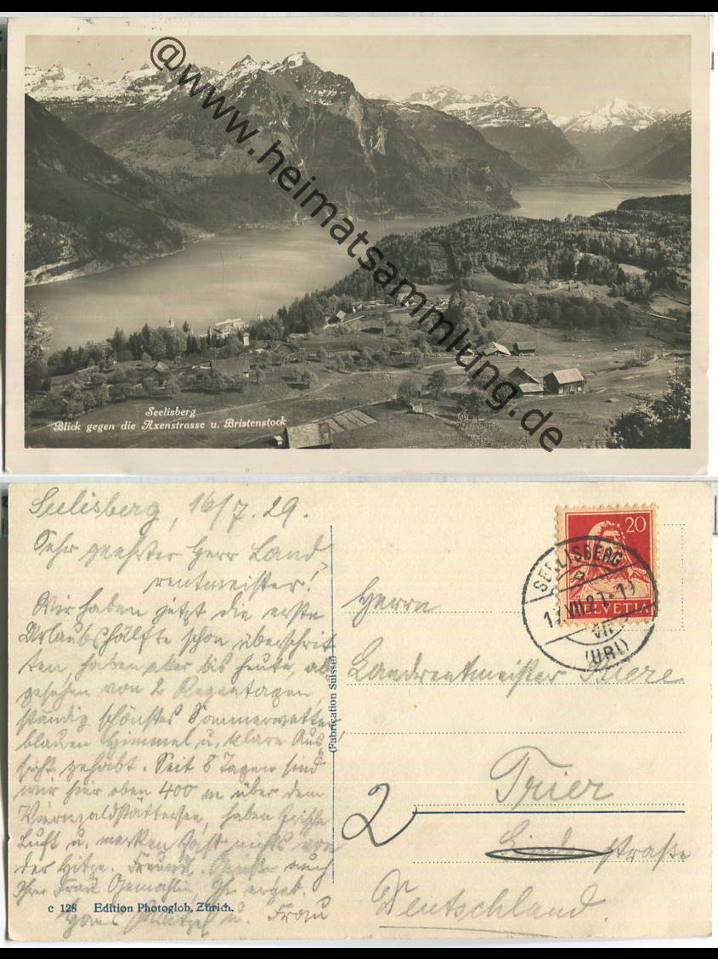 @www.heimatsammlung.de
Seelisberg
Blick gegen die Axenstrasse u. Bristenstock
Seelisberg, 16/7.29.
Sehr geehrter Herr Land-
rentmeister!
Wir haben jetzt die erste
Urlaubshälfte schon überschrit-
ten, haben aber bis heute, ab-
gesehen von 2 Regentagen
ständig schönstes Sommerwetter
blauen Himmel u. klare Aus-
sicht gehabt. Seit 8 Tagen sind
wir hier oben 400 m über dem
Vierwaldstättersee, haben frische
Luft u. merken fast nichts von
der Hitze. Freundl. Grüße auch
Ihrer Frau Gemahlin, Ihr ergeb.
u. Frau
c 128 Edition Photoglob, Zürich.
(Fabrication Suisse)
20
HELVETIA
SEELISBERG
(URI)
Herrn
Landrentmeister
Trier
2
straße
Deutschland.